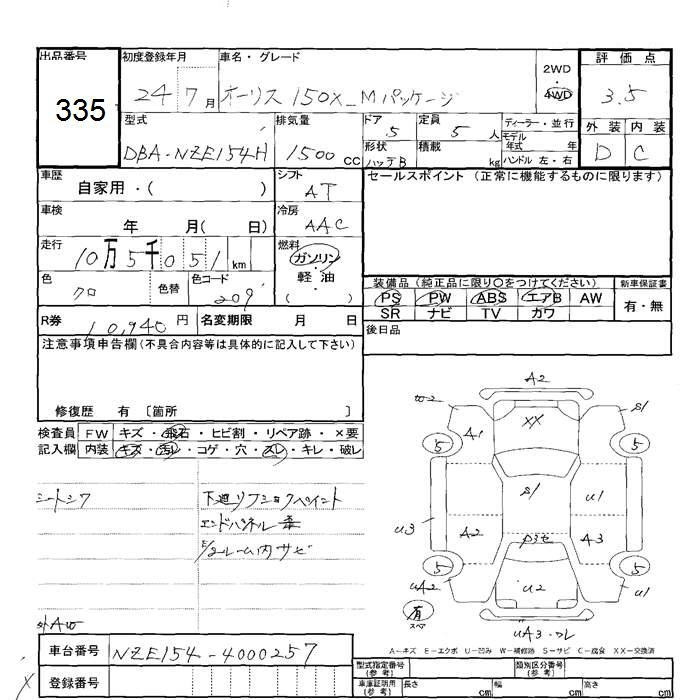 出品番号
335
初度登録年月
24 7月
車名・グレード
オーリス 150X_Mパッケージ
2WD
4WD
評価点
3.5
外装 内装
D C
型式
DBA-NZE154H
排気量
1500 CC
ドア
5
定員
5 人
ディーラー・並行
モデル
年式 年
形状
ハッチB
積載
kg
ハンドル 左・右
車歴
自家用・( )
シフト
AT
セールスポイント (正常に機能するものに限ります)
車検
年 月( 日)
冷房
AAC
走行
10万5千051 km
燃料
ガソリン
・
軽・油
( )
色
クロ
色替
色コード
209
装備品 (純正品に限り○をつけてください)
新車保証書
PS PW ABS エアB AW
SR ナビ TV カワ
有・無
R券
10,940 円
名変期限 月 日
後日品
注意事項申告欄(不具合内容等は具体的に記入して下さい)
修復歴 有 〔箇所 〕
検査員
記入欄
FW キズ・飛石・ヒビ割・リペア跡・×要
内装 キズ・汚レ・コゲ・穴・スレ・キレ・破レ
シートシワ
下廻リフショクペイント
エンドパネル
ルーム内サビ
車台番号
NZE154-4000257
登録番号
A2
W2
A1
XX
S1
5
5
S1
U1
U3
A2
A3
5
5
UA2
U2
U1
有
スペア
UA3・ワレ
A-キズ E-エクボ U-凹み W-補修跡 S-サビ C-腐食 XX-交換済
型式指定番号
(参考)
類別区分番号
(参考)
車庫証明用
(参考)
長さ cm
幅 cm
高さ cm